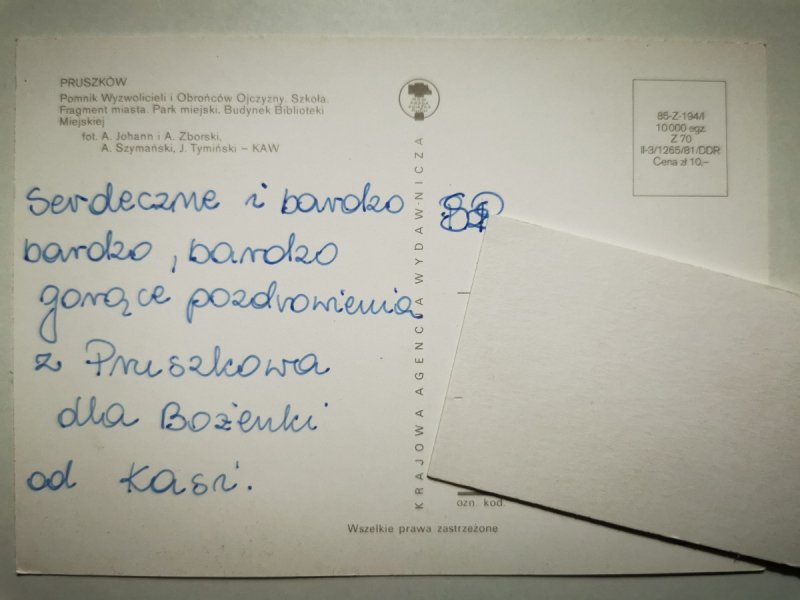 PRUSZKÓW
Pomnik Wyzwolicieli i Obrońców Ojczyzny. Szkoła.
Fragment miasta. Park miejski. Budynek Biblioteki
Miejskiej
fot. A. Johann i A. Zborski,
A. Szymański, J. Tymiński – KAW
85-Z-194/I
10 000 egz.
Z 70
II-3/1265/81/DDR
Cena zł 10,–
Serdeczne i bardzo
bardzo, bardzo
gorące pozdrowienia
z Pruszkowa
dla Bożenki
od Kasi.
KRAJOWA AGENCJA WYDAWNICZA
ozn. kod.
Wszelkie prawa zastrzeżone